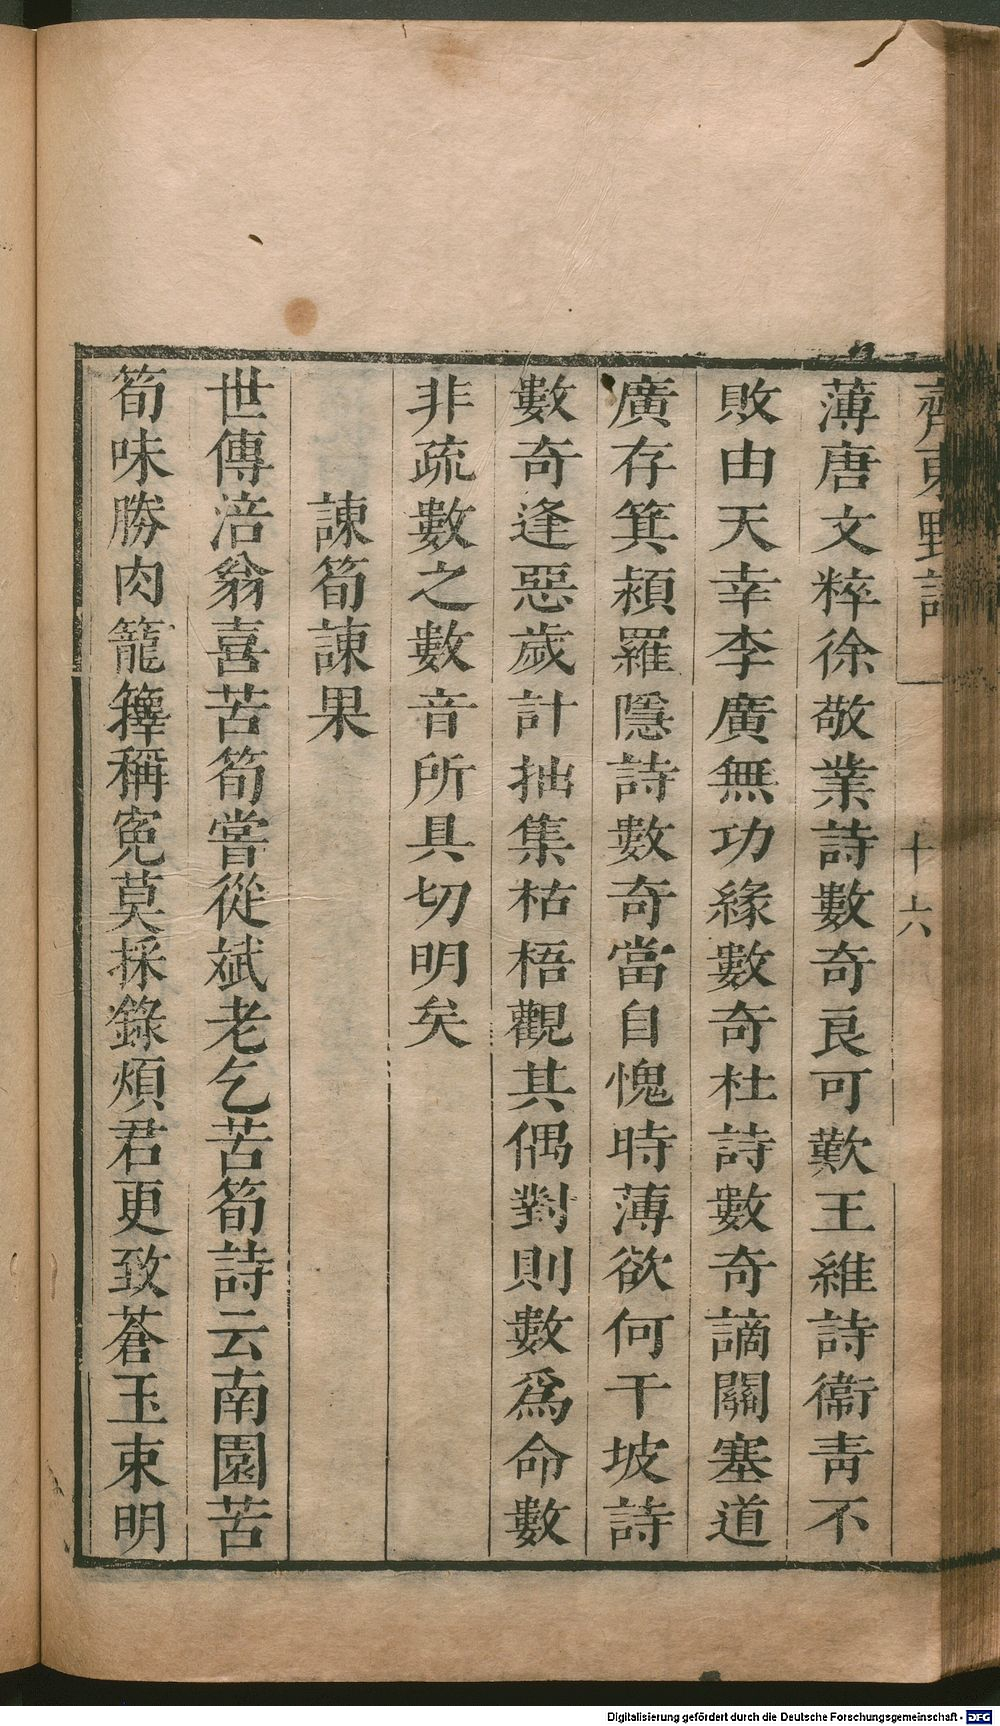 齊東野語
十六
薄唐文粹徐敬業詩數奇良可歎王維詩衞靑不
敗由天幸李廣無功緣數奇杜詩數奇謫關塞道
廣存箕潁羅隱詩數奇當自愧時薄欲何干坡詩
數奇逢惡歲計拙集枯梧觀其偶對則數爲命數
非疏數之數音所具切明矣
諫筍諫果
世傳涪翁喜苦筍嘗從斌老乞苦筍詩云南園苦
筍味勝肉籠籜稱寃莫採錄煩君更致蒼玉束明
Digitalisierung gefördert durch die Deutsche Forschungsgemeinschaft - DFG